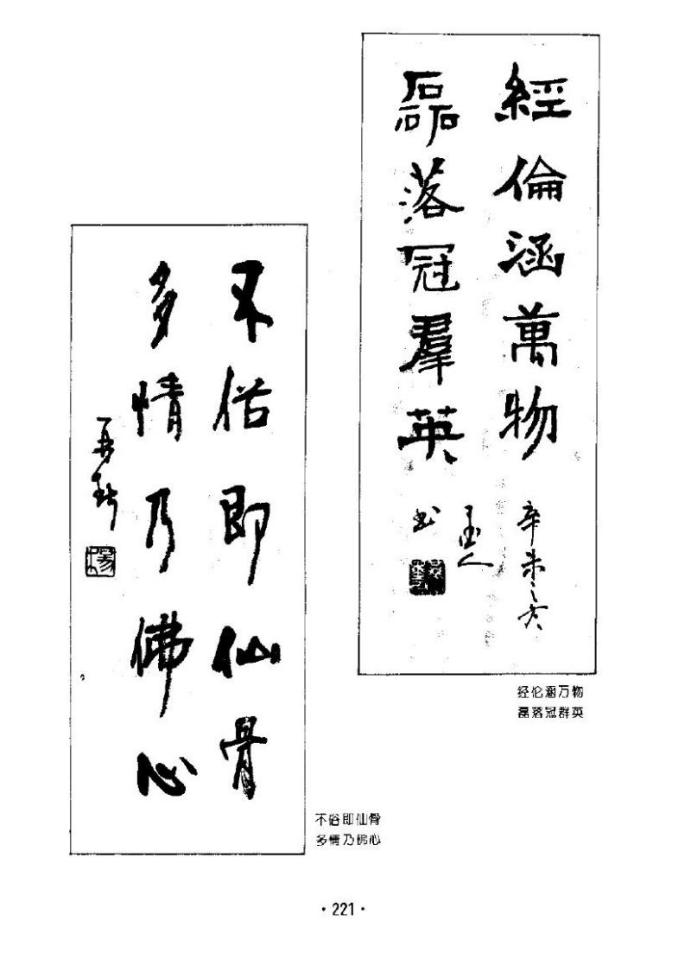 經倫涵萬物
磊落冠羣英
辛未之冬
书
经伦涵万物
磊落冠群英
不俗即仙骨
多情乃佛心
不俗即仙骨
多情乃佛心
·221·